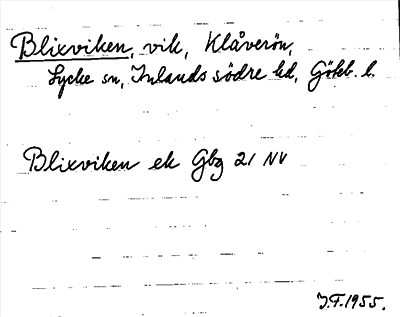 Blixviken, vik, Klåverön,
Lycke sn, Inlands södre hd, Göteb. l.
Blixviken ek Gbg 21 NV
J.F. 1955.